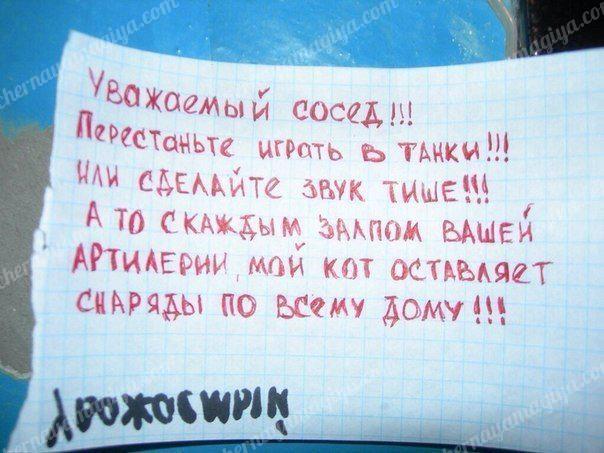 chernayamagiya.com
Уважаемый сосед!!!
Перестаньте играть в танки!!!
Или сделайте звук тише!!!
А то с каждым залпом вашей
артилерии, мой кот оставляет
снаряды по всему дому!!!